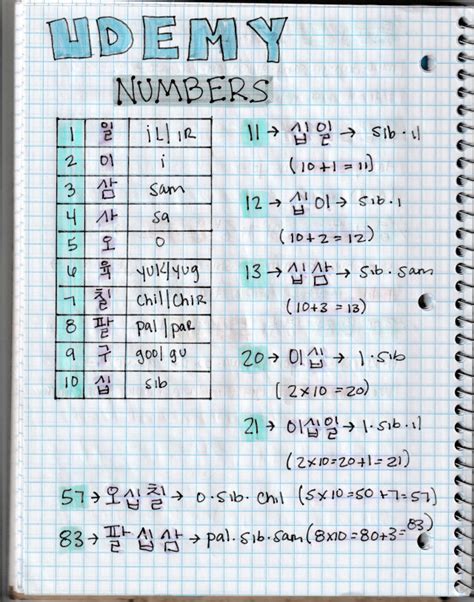 UDEMY
NUMBERS
1 일 iL/iR
2 이 i
3 삼 sam
4 사 sa
5 오 o
6 육 yuk/yug
7 칠 chil/chiR
8 팔 pal/par
9 구 goo/gu
10 십 sib
11 → 십일 → sib·il
(10+1=11)
12 → 십이 → sib·i
(10+2=12)
13 → 십삼 → sib·sam
(10+3=13)
20 → 이십 → i·sib
(2x10=20)
21 → 이십일 → i·sib·il
(2x10=20+1=21)
57 → 오십칠 → o·sib·chil (5x10=50+7=57)
83 → 팔십삼 → pal·sib·sam (8x10=80+3=83)